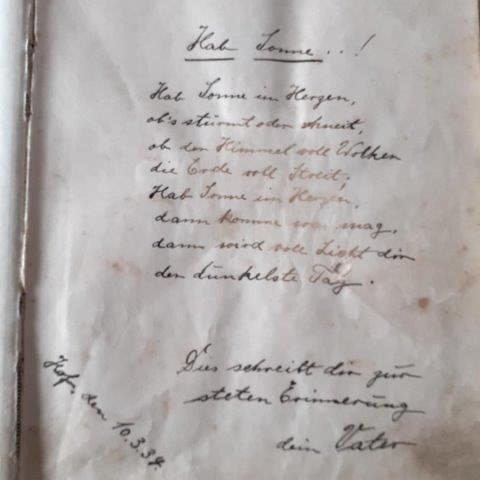 Hab Sonne . . !
Hab Sonne im Herzen,
ob's stürmt oder schneit,
ob der Himmel voll Wolken
die Erde voll Streit;
Hab Sonne im Herzen,
dann komme was mag,
dann wird voll Licht dir
der dunkelste Tag.
Dies schreibt dir zur
steten Erinnerung
dein Vater
Hof, den 10.3.34.